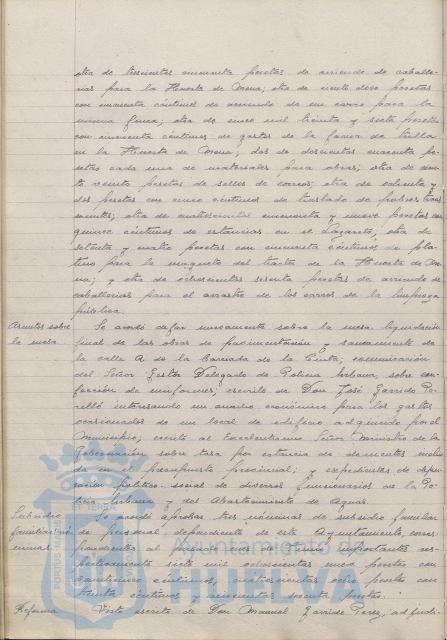 otra de trescientas cincuenta pesetas de arriendo de caballe-
rias para la Huerta de Mena; otra de ciento doce pesetas
con cincuenta céntimos de arriendo de un carro para la
misma finca; otra de cinco mil treinta y siete pesetas
con cincuenta céntimos de gastos de la faena de trilla
en la Huerta de Mena; dos de doscientas cuarenta pe-
setas cada una de materiales para obras; otra de
veinte pesetas de sellos de correos; otra de ochenta y
dos pesetas con cinco céntimos de traslado de pobres tran-
seuntes; otra de cuatrocientas cincuenta y nueve pesetas con
quince céntimos de estancias en el Lazareto; otra de
setenta y cuatro pesetas con cincuenta céntimos de pla-
tino para la magneto del tractor de la Huerta de Me-
na; y otra de ochocientas sesenta pesetas de arriendo de
caballerias para el arrastre de los carros de la limpieza
pública.
Asuntos sobre la mesa Se acordó dejar nuevamente sobre la mesa liquidación
final de las obras de pavimentación y saneamiento de
la calle A de la Barriada de la Cinta; comunicación
del Señor Gestor Delegado de Policia Urbana sobre con-
fección de uniformes; escrito de Don José Garrido Pe-
relló interesando un auxilio económico para los gastos
ocasionados de un local de edificio adquirido por el
Municipio; escrito al Excelentisimo Señor Ministro de la
Gobernación sobre tasa por estancia de dementes inclui-
da en el presupuesto provincial; y expedientes de depu-
ración politico-social de diversos funcionarios de la Po-
licia Urbana y del Abastecimiento de Aguas.
Subsidio familiar Se acordó aprobar tres nóminas de subsidio familiar
de personal dependiente de este Ayuntamiento, corres-
pondientes al pasado mes de Junio importantes res-
pectivamente siete mil ochocientas cinco pesetas con
céntimos, cuatrocientas ocho pesetas con
treinta céntimos y cincuenta pesetas.
Reforma Visto escrito de Don Manuel Garrido Perez, adjudi-
PORTUS MARIS ET TERRÆ
Ayuntamiento de
HUELVA